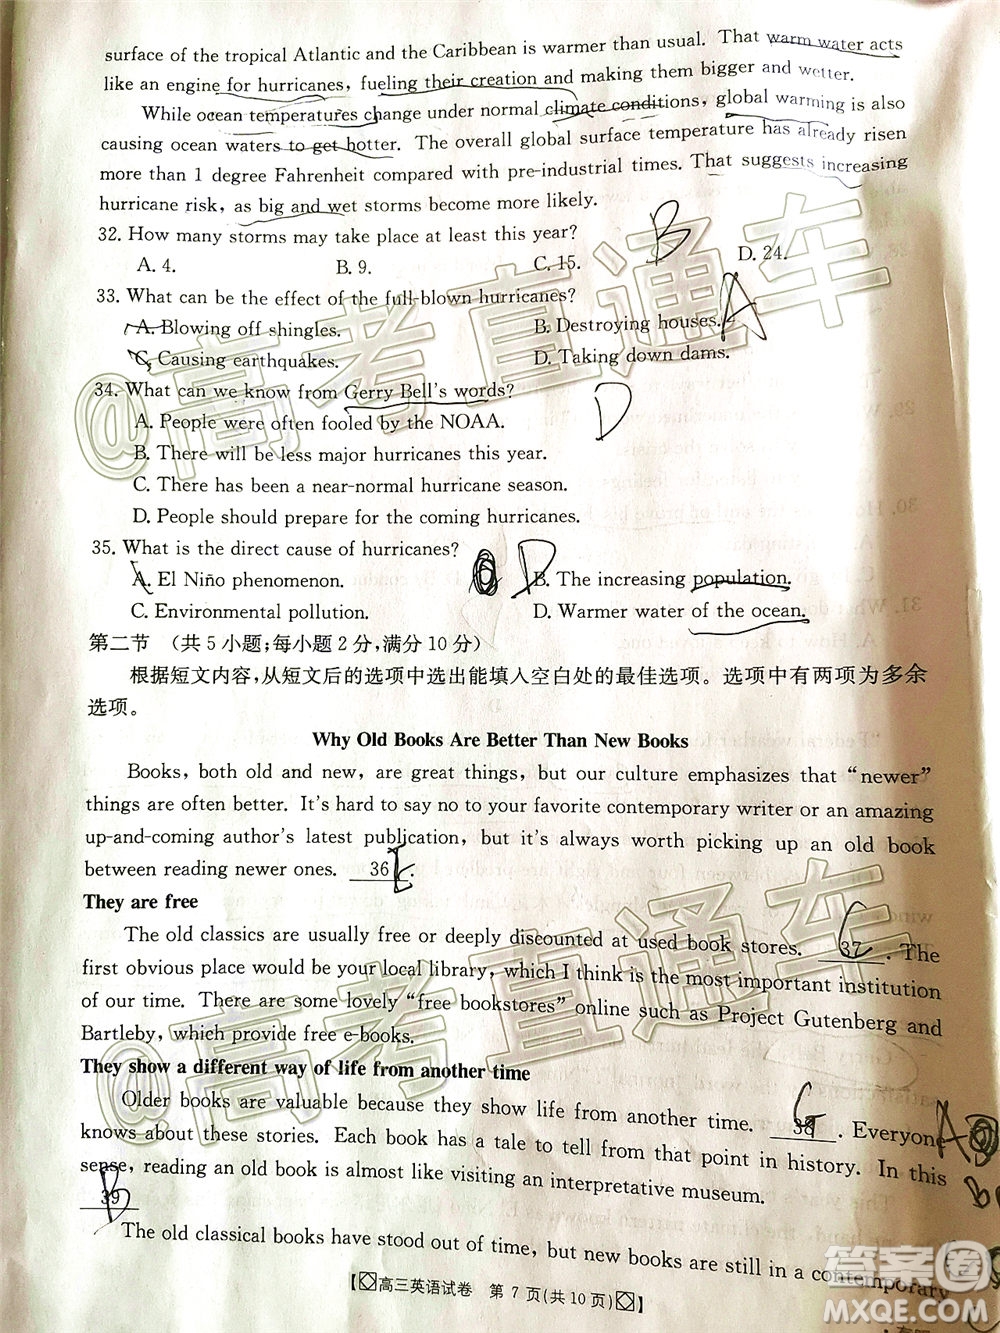 surface of the tropical Atlantic and the Caribbean is warmer than usual. That warm water acts
like an engine for hurricanes, fueling their creation and making them bigger and wetter.
While ocean temperatures change under normal climate conditions, global warming is also
causing ocean waters to get hotter. The overall global surface temperature has already risen
more than 1 degree Fahrenheit compared with pre-industrial times. That suggests increasing
hurricane risk, as big and wet storms become more likely.
32. How many storms may take place at least this year?
B
A. 4. B. 9. C. 15. D. 24.
33. What can be the effect of the full-blown hurricanes?
A
A. Blowing off shingles. B. Destroying houses.
C. Causing earthquakes. D. Taking down dams.
34. What can we know from Gerry Bell's words?
D
A. People were often fooled by the NOAA.
B. There will be less major hurricanes this year.
C. There has been a near-normal hurricane season.
D. People should prepare for the coming hurricanes.
35. What is the direct cause of hurricanes?
D
A. El Niño phenomenon. B. The increasing population.
C. Environmental pollution. D. Warmer water of the ocean.
第二节 (共5小题;每小题2分,满分10分)
根据短文内容,从短文后的选项中选出能填入空白处的最佳选项。选项中有两项为多余
选项。
Why Old Books Are Better Than New Books
Books, both old and new, are great things, but our culture emphasizes that “newer”
things are often better. It's hard to say no to your favorite contemporary writer or an amazing
up-and-coming author's latest publication, but it's always worth picking up an old book
between reading newer ones. 36 .
They are free
The old classics are usually free or deeply discounted at used book stores. 37 . The
first obvious place would be your local library, which I think is the most important institution
of our time. There are some lovely “free bookstores” online such as Project Gutenberg and
Bartleby, which provide free e-books.
They show a different way of life from another time
Older books are valuable because they show life from another time. 38 . Everyone
knows about these stories. Each book has a tale to tell from that point in history. In this
sense, reading an old book is almost like visiting an interpretative museum.
39
B
The old classical books have stood out of time, but new books are still in a contemporary
【高三英语试卷 第 7 页(共 10 页)】
@高考直通车
@高考直通车
答案圈
MXQE.COM